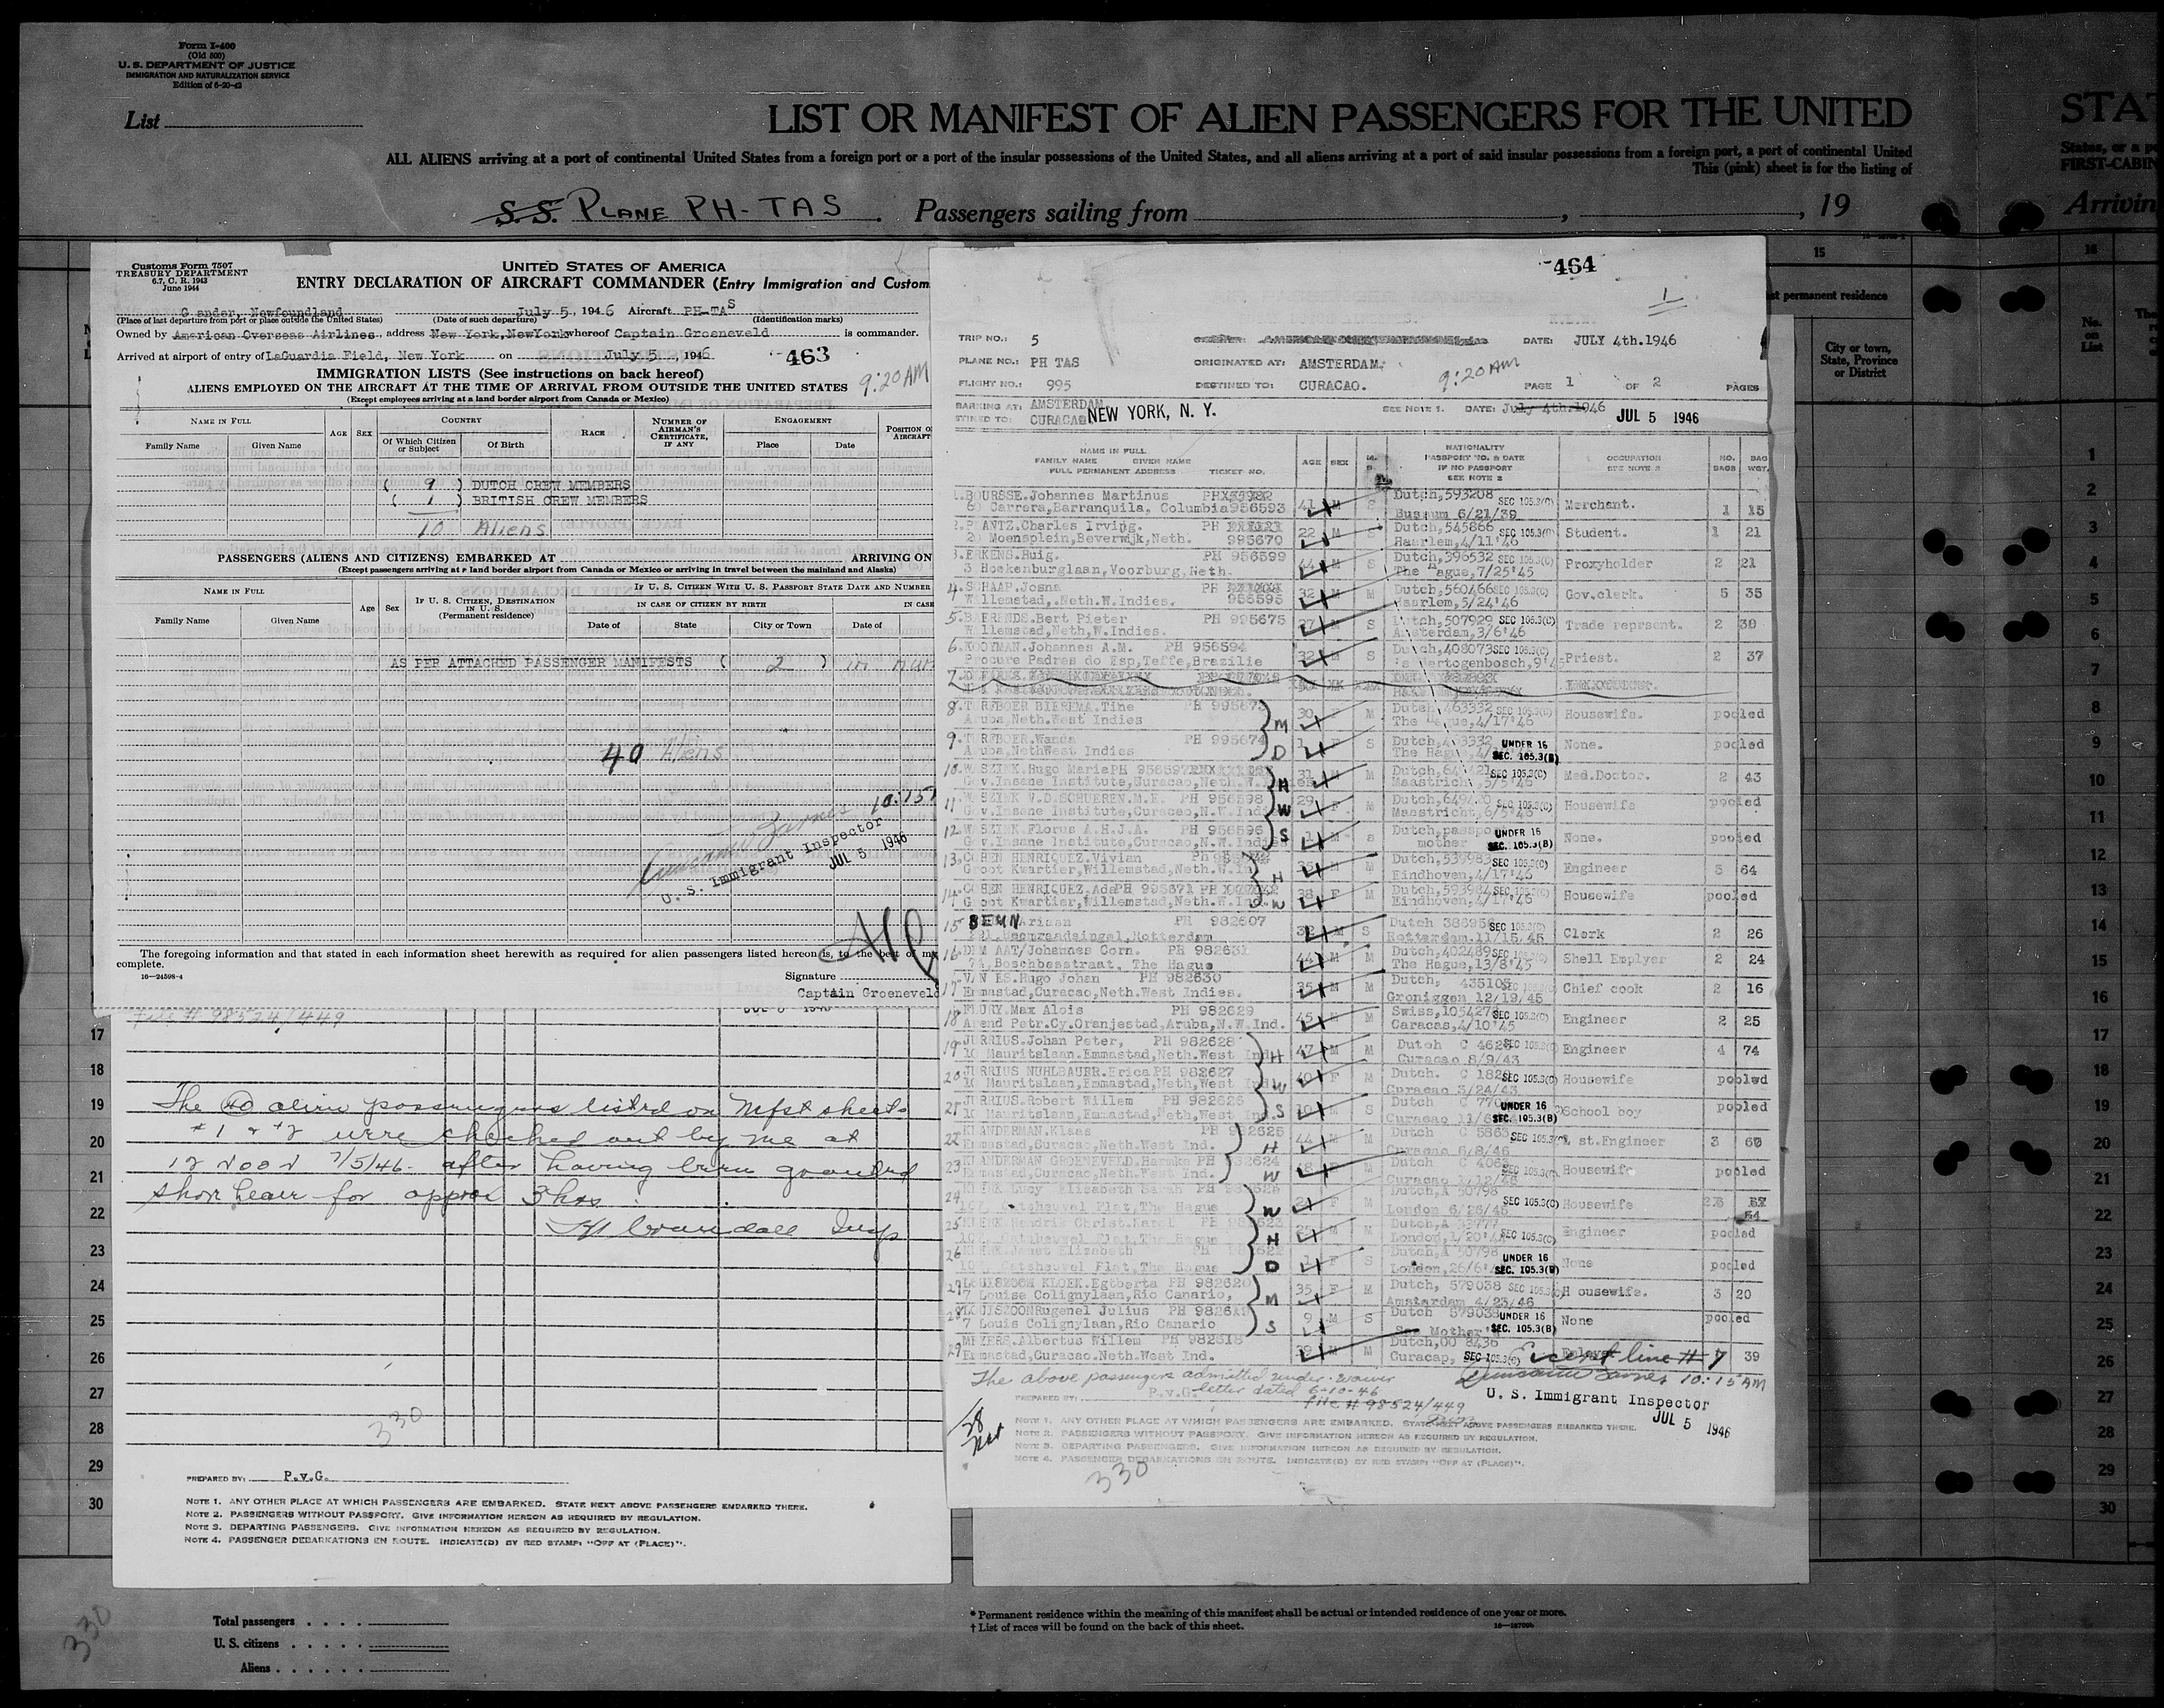 Form I-400
(Old 500)
U. S. DEPARTMENT OF JUSTICE
IMMIGRATION AND NATURALIZATION SERVICE
Edition of 6-20-42
List
LIST OR MANIFEST OF ALIEN PASSENGERS FOR THE UNITED
ALL ALIENS arriving at a port of continental United States from a foreign port or a port of the insular possessions of the United States, and all aliens arriving at a port of said insular possessions from a foreign port, a port of continental United
This (pink) sheet is for the listing of
S.S. PLANE PH-TAS Passengers sailing from , , 19
STAT
States, or a po
FIRST-CABIN
Arrivin
Customs Form 7507
TREASURY DEPARTMENT
6.7, C. R. 1943
June 1944
UNITED STATES OF AMERICA
ENTRY DECLARATION OF AIRCRAFT COMMANDER (Entry Immigration and Custom
Gander, Newfoundland July 5, 1946 Aircraft PH-TAS
(Place of last departure from port or place outside the United States) (Date of such departure) (Identification marks)
Owned by American Overseas Airlines, address New York,NewYork whereof Captain Groeneveld is commander.
Arrived at airport of entry of LaGuardia Field, New York on July 5, 1946
463
9:20AM
IMMIGRATION LISTS (See instructions on back hereof)
ALIENS EMPLOYED ON THE AIRCRAFT AT THE TIME OF ARRIVAL FROM OUTSIDE THE UNITED STATES
(Except employees arriving at a land border airport from Canada or Mexico)
NAME IN FULL AGE SEX COUNTRY RACE NUMBER OF AIRMAN'S CERTIFICATE, IF ANY ENGAGEMENT POSITION O AIRCRAFT
Family Name Given Name Of Which Citizen or Subject Of Birth Place Date
( 9 ) DUTCH CREW MEMBERS
( 1 ) BRITISH CREW MEMBERS
10 Aliens
PASSENGERS (ALIENS AND CITIZENS) EMBARKED AT ARRIVING ON
(Except passengers arriving at a land border airport from Canada or Mexico or arriving in travel between the mainland and Alaska)
NAME IN FULL Age Sex IF U. S. CITIZEN, DESTINATION IN U. S. (Permanent residence) IF U. S. CITIZEN WITH U. S. PASSPORT STATE DATE AND NUMBER
IN CASE OF CITIZEN BY BIRTH IN CASE
Family Name Given Name Date of State City or Town Date of
AS PER ATTACHED PASSENGER MANIFESTS ( 2 ) in num
40 Aliens
10:15
U. S. Immigrant Inspector
JUL 5 1946
The foregoing information and that stated in each information sheet herewith as required for alien passengers listed hereon is, to the best of my
complete.
16—24598-4
Signature
Captain Groeneveld
File # 98524/449
The 40 alien passengers listed on Mfst sheets
#1 & #2 were checked out by me at
12 Noon 7/5/46 - after having been granted
shore leave for approx 3 hrs.
Insp
330
PREPARED BY: P.v.G.
NOTE 1. ANY OTHER PLACE AT WHICH PASSENGERS ARE EMBARKED. STATE NEXT ABOVE PASSENGERS EMBARKED THERE.
NOTE 2. PASSENGERS WITHOUT PASSPORT. GIVE INFORMATION HEREON AS REQUIRED BY REGULATION.
NOTE 3. DEPARTING PASSENGERS. GIVE INFORMATION HEREON AS REQUIRED BY REGULATION.
NOTE 4. PASSENGER DEBARKATIONS EN ROUTE. INDICATE(D) BY RED STAMP: "OFF AT (PLACE)".
464
1
TRIP NO.: 5 DATE: JULY 4th.1946
PLANE NO.: PH TAS ORIGINATED AT: AMSTERDAM.
FLIGHT NO.: 995 DESTINED TO: CURACAO. 9:20AM PAGE 1 OF 2 PAGES
BARKING AT: AMSTERDAM SEE NOTE 1. DATE: July 4th.1946
STINED TO: CURACAO NEW YORK, N. Y. JUL 5 1946
NAME IN FULL FAMILY NAME GIVEN NAME FULL PERMANENT ADDRESS TICKET NO. AGE SEX NATIONALITY PASSPORT NO. & DATE IF NO PASSPORT SEE NOTE 2 OCCUPATION SEE NOTE 3 NO. BAGS BAG WGT.
1. BOURSSE.Johannes Martinus 41 M S Dutch,593208 SEC 105.3(C) Merchant. 1 15
60 Carrera,Barranquila. Columbia 956593 Bussum 6/21/39
2. PLANTZ.Charles Irving. PH 22 M S Dutch,545866 SEC 105.3(C) Student. 1 21
20 Moensplein,Beverwijk,Neth. 995670 Haarlem,4/11'46
3. ERKENS.Huig. PH 956599 44 M S Dutch,396532 SEC 105.3(C) Proxyholder 2 21
3 Hoekenburglaan,Voorburg,Neth. The Hague,7/25'45
4. SCHAAP.Josna PH 32 M M Dutch,560466 SEC 105.3(C) Gov.clerk. 5 35
Willemstad,.Neth.W.Indies. 956595 Haarlem,5/24'46
5. BERENDS.Bert Pieter PH 995675 27 M S Dutch,507929 SEC 105.3(C) Trade reprsent. 2 30
Willemstad,Neth,W.Indies. Amsterdam,3/6'46
6. KOOYMAN.Johannes A.M. PH 956594 32 M S Dutch,408073 SEC 105.3(C) Priest. 2 37
Procure Padres do Esp,Teffe,Brazilie 's Hertogenbosch,9'45
7.
8. TURFBOER BIEREMA.Tine PH 995673 30 F M Dutch,463332 SEC 105.3(C) Housewife. pooled
Aruba,Neth.West Indies M The Hague,4/17'46
9. TURFBOER.Wanda PH 995674 1 F S UNDER 16 None. pooled
Aruba,NethWest Indies D SEC. 105.3(B)
10. Hugo Maria PH 956597 31 M M SEC 105.3(C) Med.Doctor. 2 43
Gov.Insane Institute,Curacao,Neth.W. H
11. V.D.SCHUEREN.M.E. PH 956598 29 F SEC 105.3(C) Housewife pooled
Gov.Insane Institute,Curacao,N.W.Indies W Maastricht,6/5'46
12. Florus A.H.J.A. PH 956596 1 M S Dutch,passpo UNDER 16 None. pooled
Gov.Insane Institute,Curacao,N.W.Indies S mother SEC. 105.3(B)
13. COHEN HENRIQUEZ.Vivian 35 M M Dutch,539983 SEC 105.3(C) Engineer 5 64
Groot Kwartier,Willemstad,Neth.W.Ind H Eindhoven,4/17'46
14. COHEN HENRIQUEZ.Ada PH 995671 38 F M Dutch,593984 SEC 105.3(C) Housewife pooled
Groot Kwartier,Willemstad,Neth.W.Ind. W Eindhoven,4/17'46
15 BEEN Ariaan PH 982607 32 M S Dutch 386956 SEC 105.3(C) Clerk 2 26
Rotterdam Rotterdam.11/15/45
16. Johannes Corn. PH 982631 44 M M Dutch,402489 SEC 105.3(C) Shell Emplyer 2 24
74, Boschbesstraat, The Hague The Hague,13/8'45
17 VAN ES.Hugo Johan PH 982630 35 M M Dutch, 435105 Chief cook 2 16
Emmastad,Curacao,Neth.West Indies. Groniggen 12/19/45
18 FLURY.Max Alois PH 982629 45 M M Swiss,105427 SEC 105.3(C) Engineer 2 25
Arend Petr.Cy.Oranjestad,Aruba,N.W.Ind. Caracas,4/10'45
19 JURRIUS.Johan Peter, PH 982628 47 M M Dutch SEC 105.3(C) Engineer 4 74
10 Mauritslaan.Emmastad,Neth.West Ind H Curacao 8/9/43
20 JURRIUS NUHLBAUER.Erica PH 982627 40 F M Dutch. SEC 105.3(C) Housewife pooled
10 Mauritslaan,Emmastad,Neth,West Ind. W Curacao 3/24/43
21 JURRIUS.Robert Willem PH 982626 10 M S Dutch UNDER 16 School boy pooled
10 Mauritslaan,Emmastad,Neth,West Ind. S Curacao SEC. 105.3(B)
22 KLANDERMAN.Klaas PH 982625 44 M Dutch C 5863 SEC 105.3(C) st.Engineer 3 60
Emmastad,Curacao,Neth.West Ind. H Curacao 6/8/46
23 KLANDERMAN GROENEVELD. PH 982624 F M Dutch SEC 105.3(C) Housewife pooled
Emmastad,Curacao,Neth.West Ind. W Curacao 1/12/46
24 Lucy Elizabeth Sarah PH F M Dutch,A 50798 SEC 105.3(C) Housewife
Flat,The Hague W London 6/26/45
25 Hendrik Christ.Karel PH M Dutch,A 33777 Engineer pooled
Flat,The Hague H SEC 105.3(C)
26 Janet Elizabeth PH 1 F S Dutch,A 50798 UNDER 16 None pooled
Flat,The Hague D SEC. 105.3(B)
27 LOUISZOON KLOEK.Egtberta PH 982620 35 F M Dutch, 579038 SEC 105.3(C) Housewife. 3 20
7 Louise Colignylaan,Rio Canario, M Amsterdam 4/23/46
28 LOUISZOON Rugenel Julius PH 98261 9 M S Dutch 579038 UNDER 16 None pooled
7 Louis Colignylaan,Rio Canario S See Mother SEC. 105.3(B)
29 MEYERS.Albertus Willem PH 982618 39 M M Dutch,00 8436 39
Emmastad,Curacao.Neth.West Ind. Curacap, SEC 105.3(C) Except line # 7
The above passengers admitted under waiver
PREPARED BY: P.v.G. letter dated 6-10-46 10:15 AM
File # 98524/449 U. S. Immigrant Inspector
JUL 5 1946
28
NOTE 1. ANY OTHER PLACE AT WHICH PASSENGERS ARE EMBARKED. STATE NEXT ABOVE PASSENGERS EMBARKED THERE.
NOTE 2. PASSENGERS WITHOUT PASSPORT. GIVE INFORMATION HEREON AS REQUIRED BY REGULATION.
NOTE 3. DEPARTING PASSENGERS. GIVE INFORMATION HEREON AS REQUIRED BY REGULATION.
NOTE 4. PASSENGER DEBARKATIONS EN ROUTE. INDICATE(D) BY RED STAMP: "OFF AT (PLACE)".
330
15
st permanent residence
City or town, State, Province or District
16
No. on List
1
2
3
4
5
6
7
8
9
10
11
12
13
14
15
16
17
18
19
20
21
22
23
24
25
26
27
28
29
30
17
18
19
20
21
22
23
24
25
26
27
28
29
30
330
Total passengers
U. S. citizens
Aliens
* Permanent residence within the meaning of this manifest shall be actual or intended residence of one year or more.
† List of races will be found on the back of this sheet.